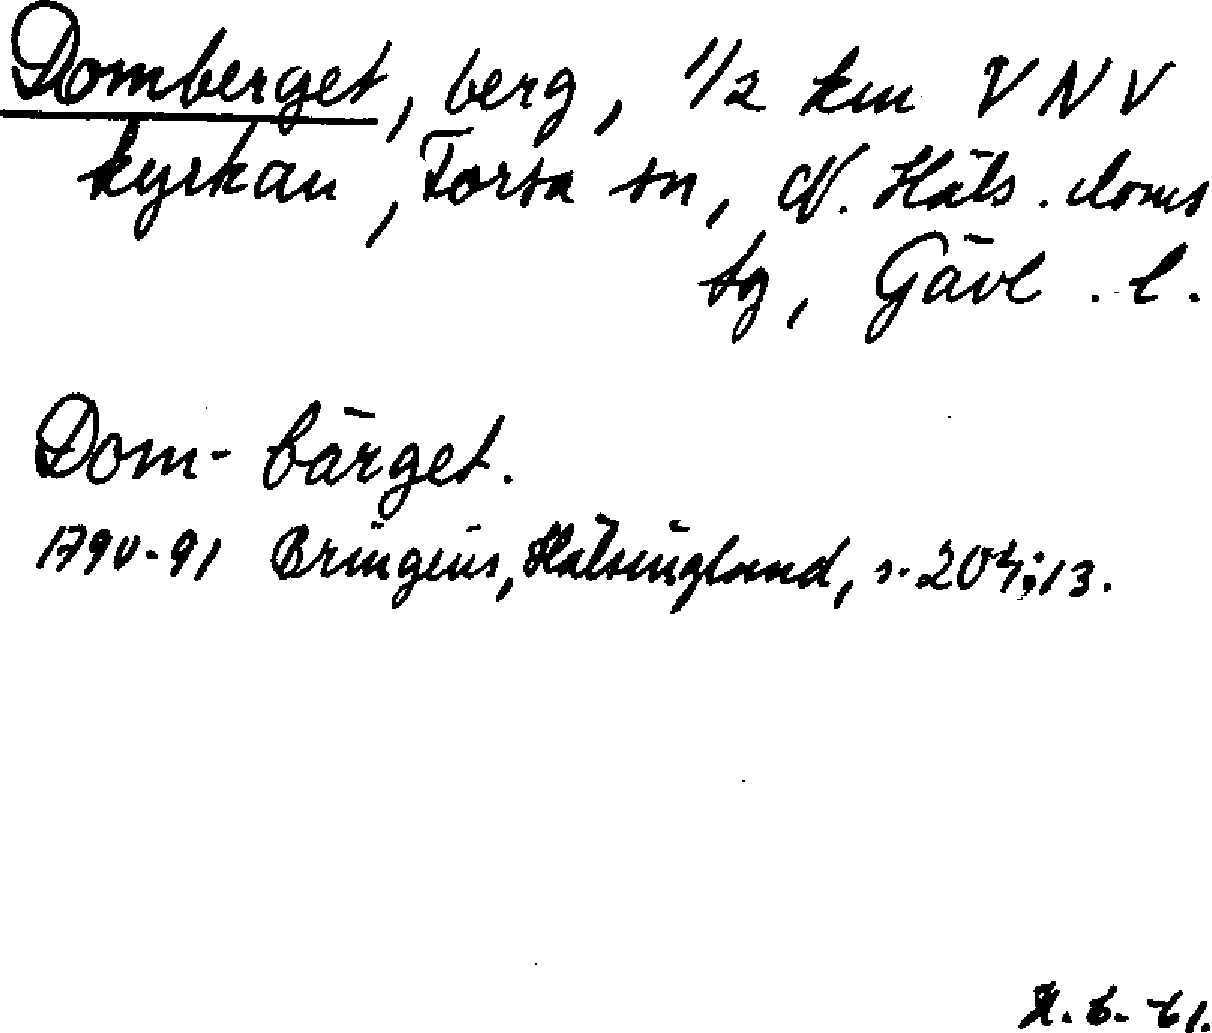 Domberget, berg, 1/2 km VNV
kyrkan, Forsa sn, N. Häls. doms
sg, Gävl. l.
Dom-bärget.
1790-91 Bringéus, Hälsingland, s. 204:13.